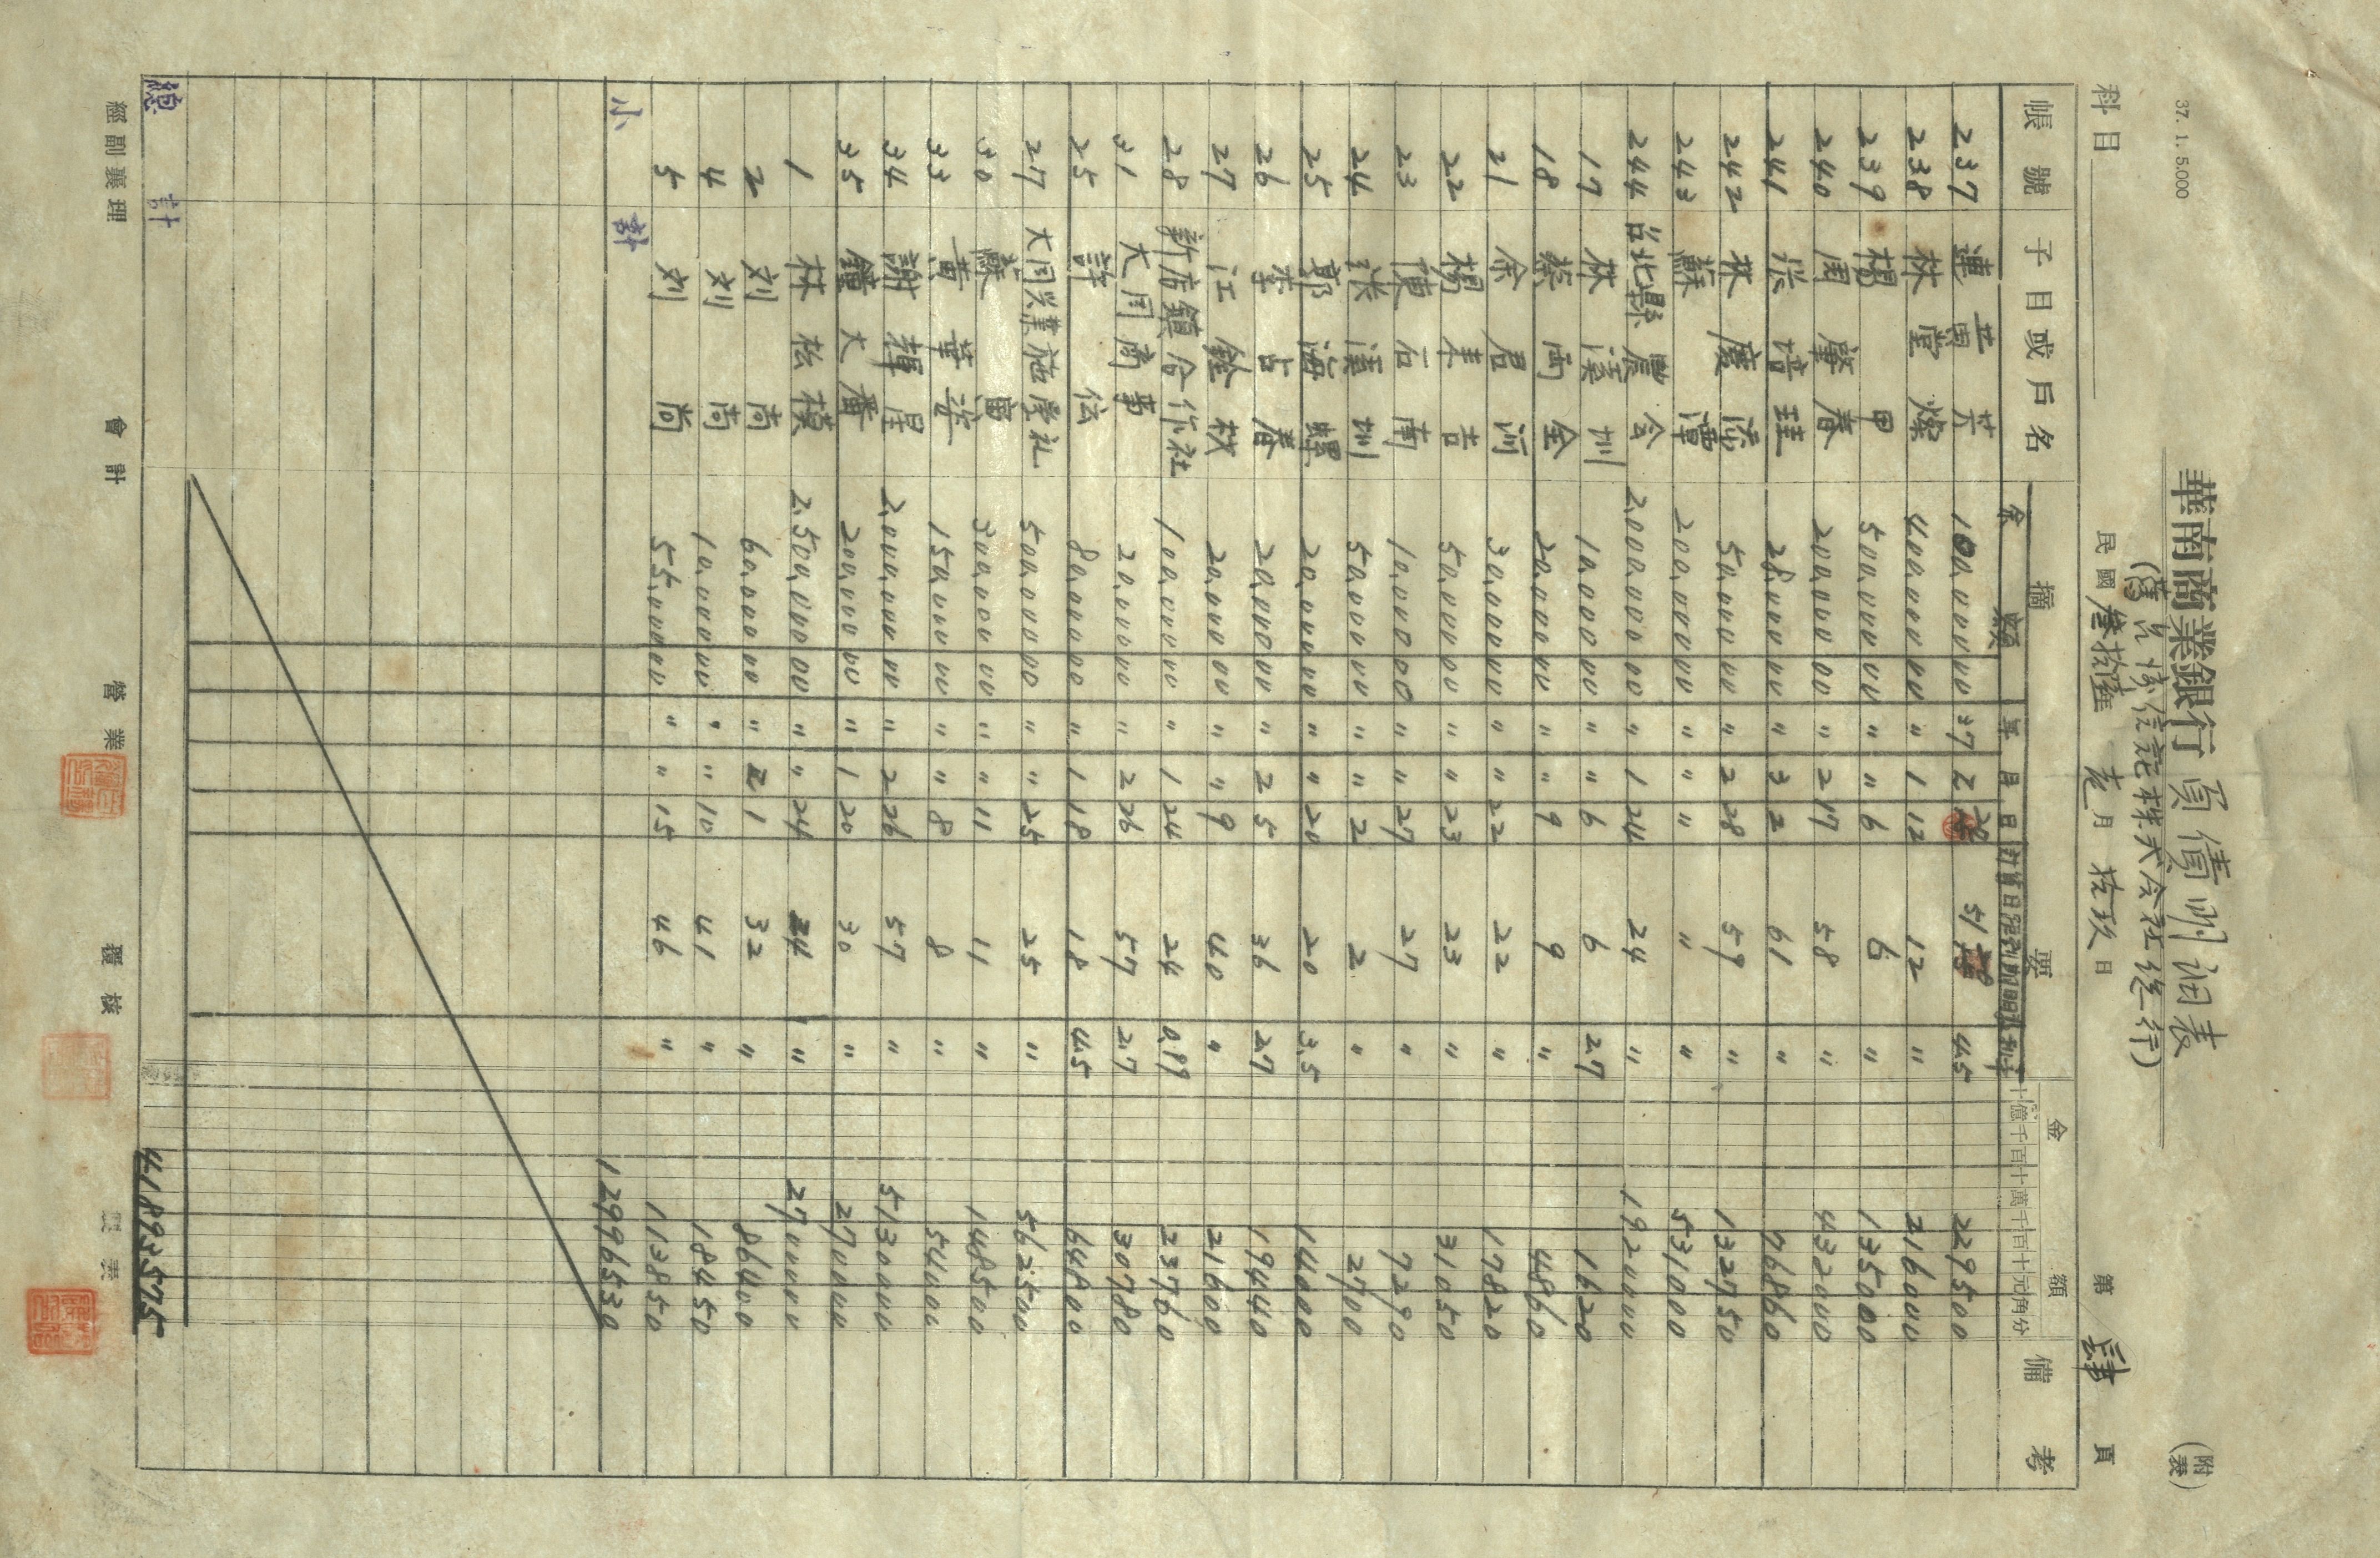 37. 1. 5.000
(附表)
華南商業銀行 負債明細表
(舊台灣信託株式会社総行)
科目
民國 叁拾陸 年 壱月 拾玖日
第 肆 頁
帳號 子目或戶名 摘要 金額 備考
余額 年 月 日 計算日 利率 十億千百十萬千百十元角分
237 連 芳 100,000 00 37 2 20 51 4.5 229500
238 林堂燦 400,000 00 〃 1 12 12 〃 216000
239 楊甲 500,000 00 〃 〃 6 6 〃 135000
240 周肇春 200,000 00 〃 2 17 58 〃 432000
241 張培珪 28,000 00 〃 3 2 61 〃 76860
242 林慶 50,000 00 〃 2 28 59 〃 132750
243 蘇潭 200,000 00 〃 〃 〃 〃 〃 531000
244 台北縣農会 2,000,000 00 〃 1 24 24 〃 1920000
17 林溪圳 10,000 00 〃 〃 6 6 2.7 1620
18 蔡両金 20,000 00 〃 〃 9 9 〃 4860
21 余君河 30,000 00 〃 〃 22 22 〃 17820
22 楊來吉 50,000 00 〃 〃 23 23 〃 31050
23 陳石南 10,000 00 〃 〃 27 27 〃 7290
24 張溪圳 50,000 00 〃 〃 2 2 〃 2700
25 郭海螺 20,000 00 〃 〃 20 20 3.5 14000
26 李占春 20,000 00 〃 2 5 36 2.7 19440
27 江銓枝 20,000 00 〃 〃 9 40 〃 21600
28 新店鎮合作社 100,000 00 〃 1 24 24 0.99 23760
31 大同商事 20,000 00 〃 2 26 57 2.7 30780
25 許伝 80,000 00 〃 1 18 18 4.5 64800
27 大同興業施療社 500,000 00 〃 〃 25 25 〃 562500
30 蘇富 300,000 00 〃 〃 11 11 〃 148500
33 黃華 150,000 00 〃 〃 8 8 〃 54000
34 謝輝星 2,000,000 00 〃 2 26 57 〃 5130000
35 鐘大番 200,000 00 〃 1 20 30 〃 270000
1 林松模 2,500,000 00 〃 〃 24 24 〃 2700000
2 刘尚 60,000 00 〃 2 1 32 〃 86400
4 刘尚 10,000 00 〃 〃 10 41 〃 18450
5 刘尚 55,000 00 〃 〃 15 46 〃 113850
小計 12996530
總計 418935575
經副襄理 會計 營業 覆核 製表